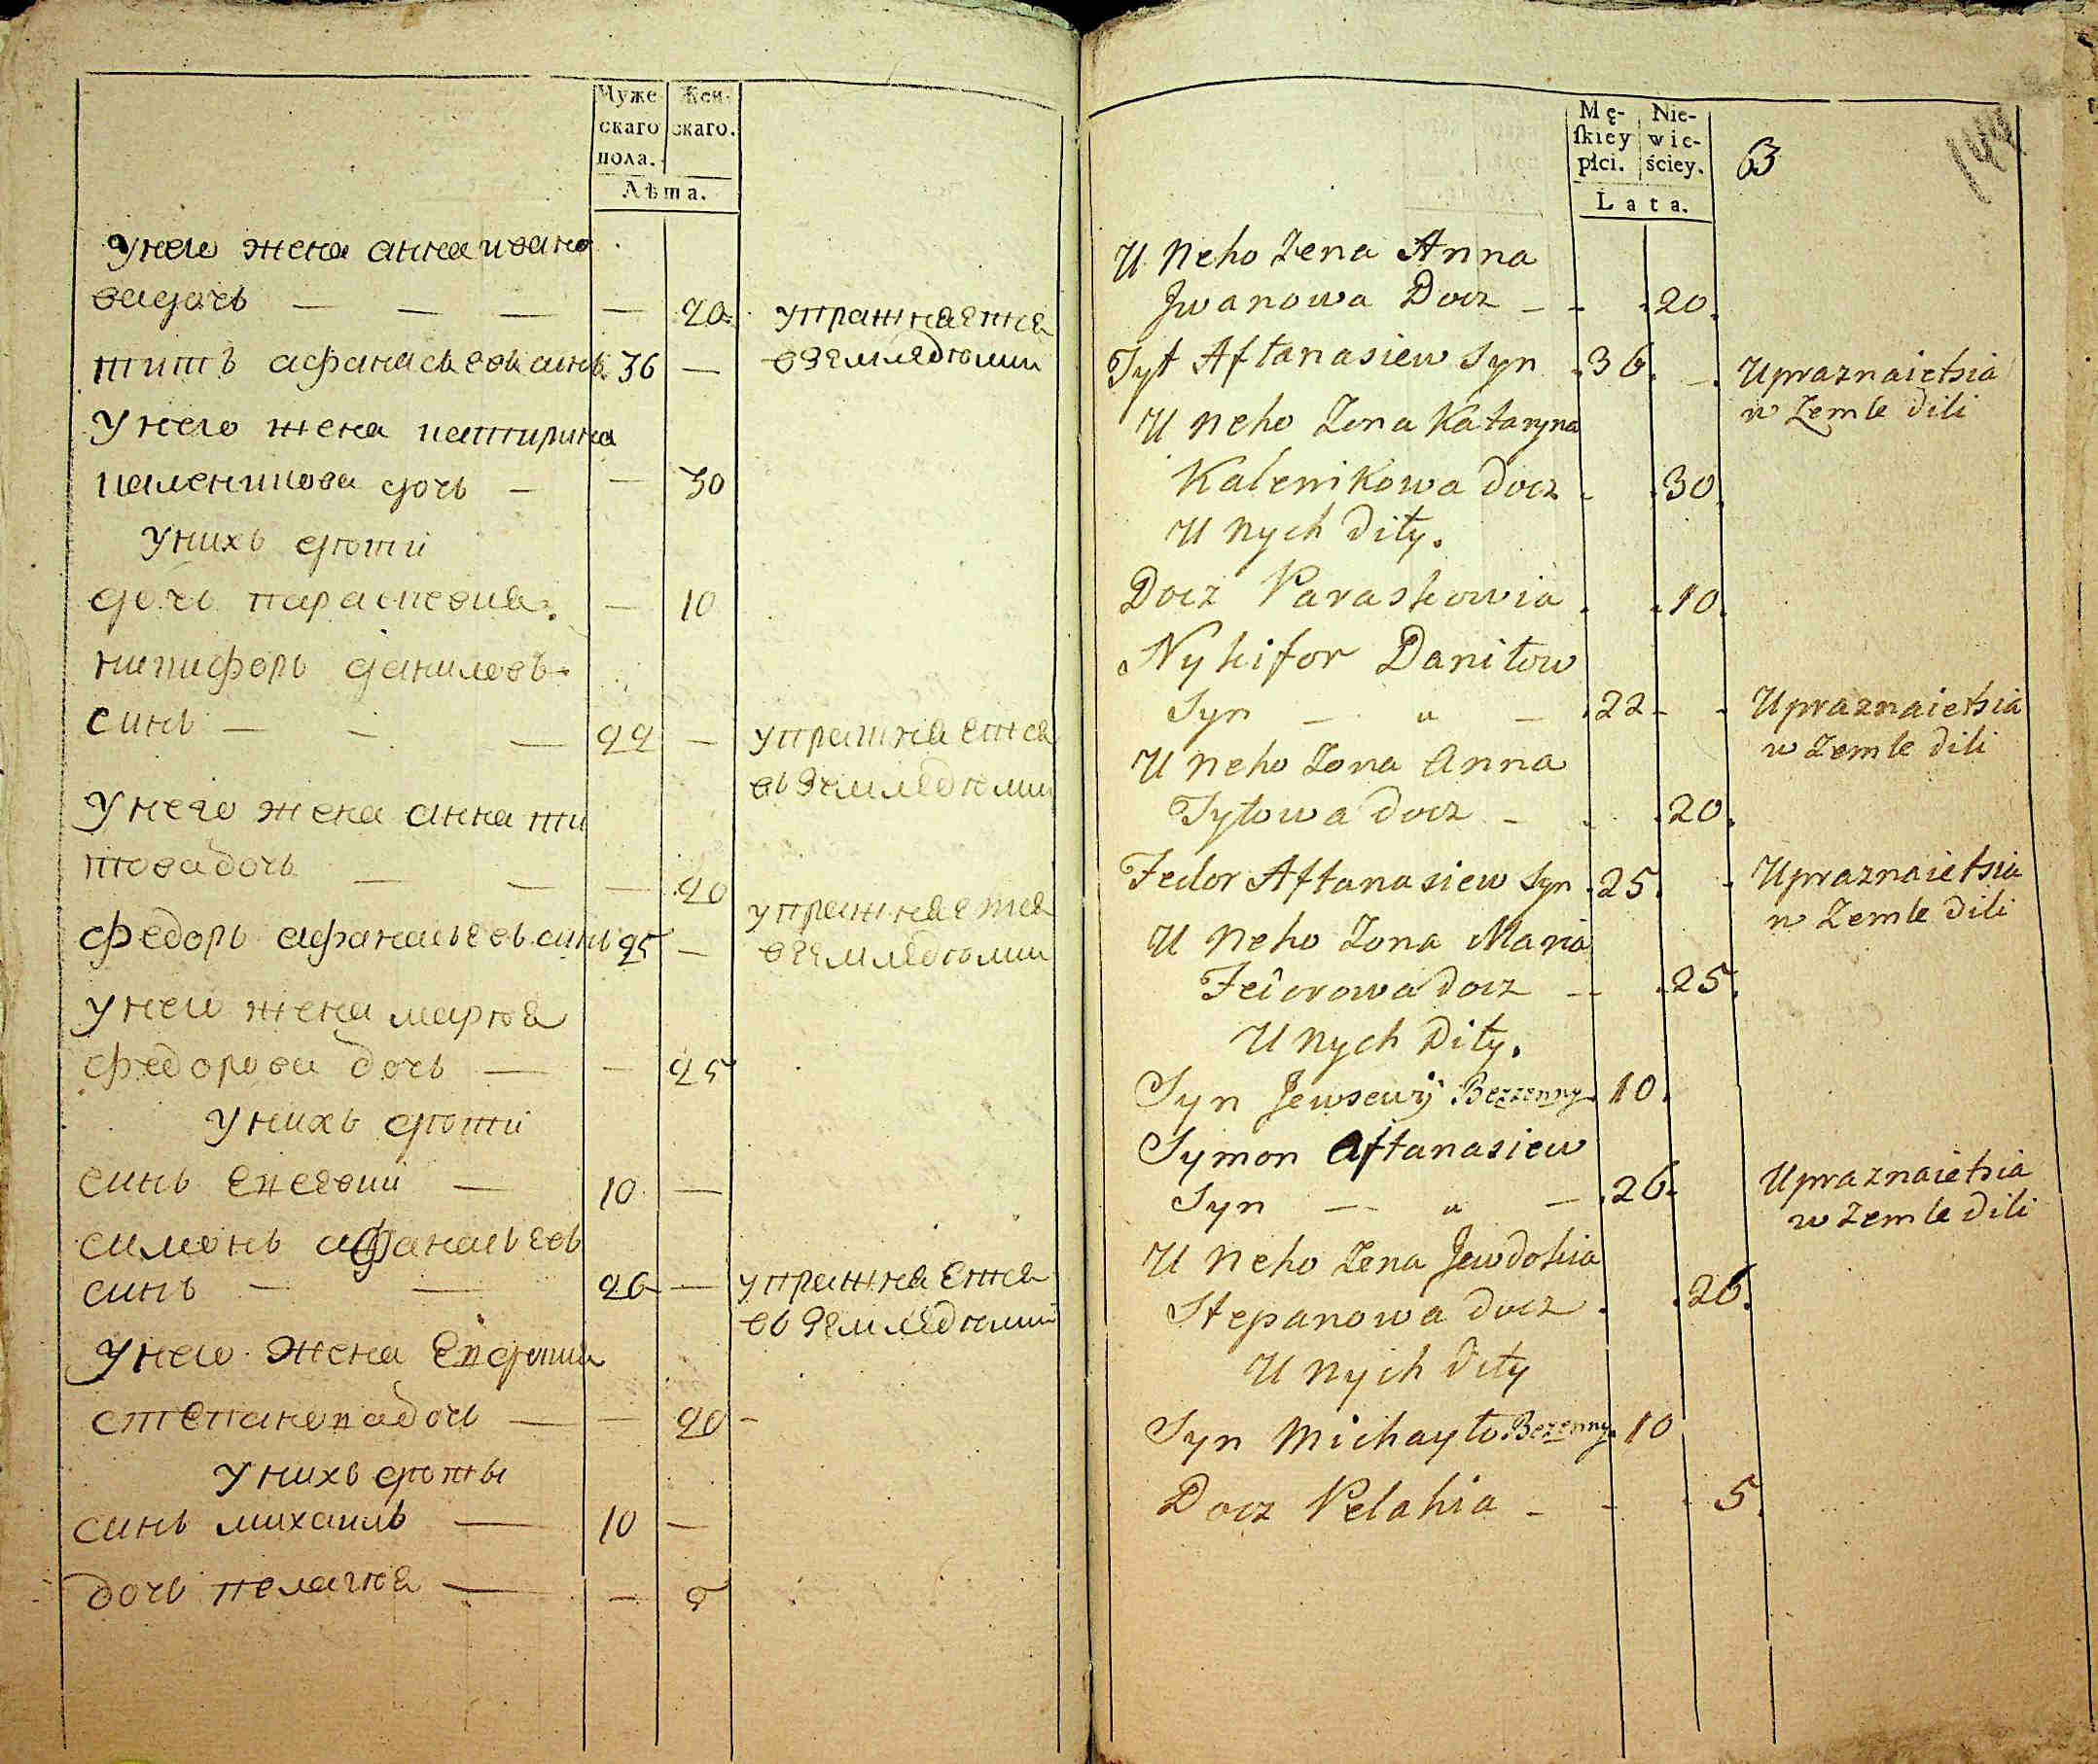 Муже-
скаго
пола.
Жен-
скаго.
Лѣта.
У него жена анна ивано
ва дочь — — — — 20
упражняется
в земледѣлии
титъ афанасьевъ синъ 36 —
У него жена катирина
каленикова дочь — — 30
У нихъ дѣти
дочь параскевия. — 10
никифоръ даниловъ
синъ — — — 22 —
упражняется
въ земледѣлии
У него жена анна ти
това дочь — — — 20
федоръ афанасьевъ синъ 25 —
упражняется
в земледѣлии
У него жена мария
федорова дочь — — 25
У нихъ дѣти
синъ евсевий — 10 —
симонъ афанасьевъ
синъ — — 26 —
упражняется
въ земледѣлии
У него жена Евдокия
степанова дочь — — 20 -
У нихъ дѣты
синъ михаилъ — 10 —
дочь пелагия — — 5
Mę-
ſkiey
płci.
Nie-
wie-
ściey.
Lata.
63
144
U Neho Zena Anna
Jwanowa Docz - - 20.
Tyt Aftanasiew Syn 36. -
Upraznaietsia
w Zemle dili
U Neho Zona Kataryna
Kalenikowa docz . 30
U Nych dity.
Docz Paraskowia . 10.
Nykifor Daniłow
Syn — „ — 22 - -
Upraznaietsia
w Zemle dili
U Neho Zona Anna
Tytowa docz - . 20.
Fedor Aftanasiew Syn 25. -
Upraznaietsia
w Zemle dili
U Neho Zona Maria
Fedorowa docz - - 25.
U Nych Dity.
Syn Jewsewÿ Bezzenny 10.
Symon Aftanasiew
Syn — „ — 26.
Upraznaietsia
w Zemle dili
U Neho Zena Jewdokia
Stepanowa docz . 26.
U Nych dity
Syn Michayło Bezenny. 10
Docz Pelahia - - 5.